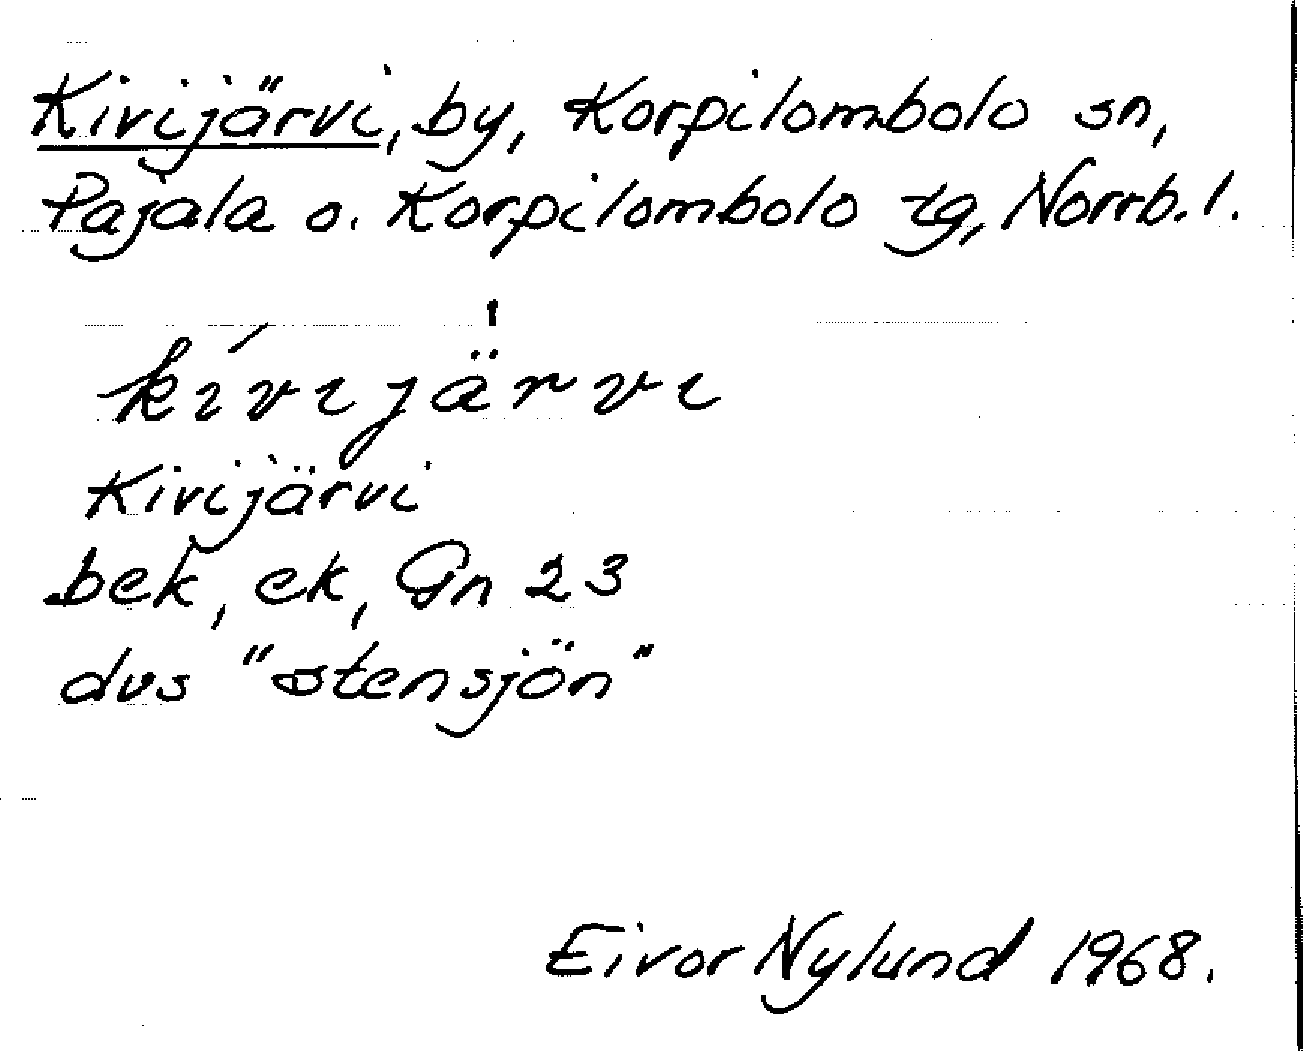 Kivijärvi, by, Korpilombolo sn,
Pajala o. Korpilombolo tg, Norrb. l.
kívijä̍rvi
Kivijärvi
bek, ek, Gn 23
dvs "stensjön"
Eivor Nylund 1968.